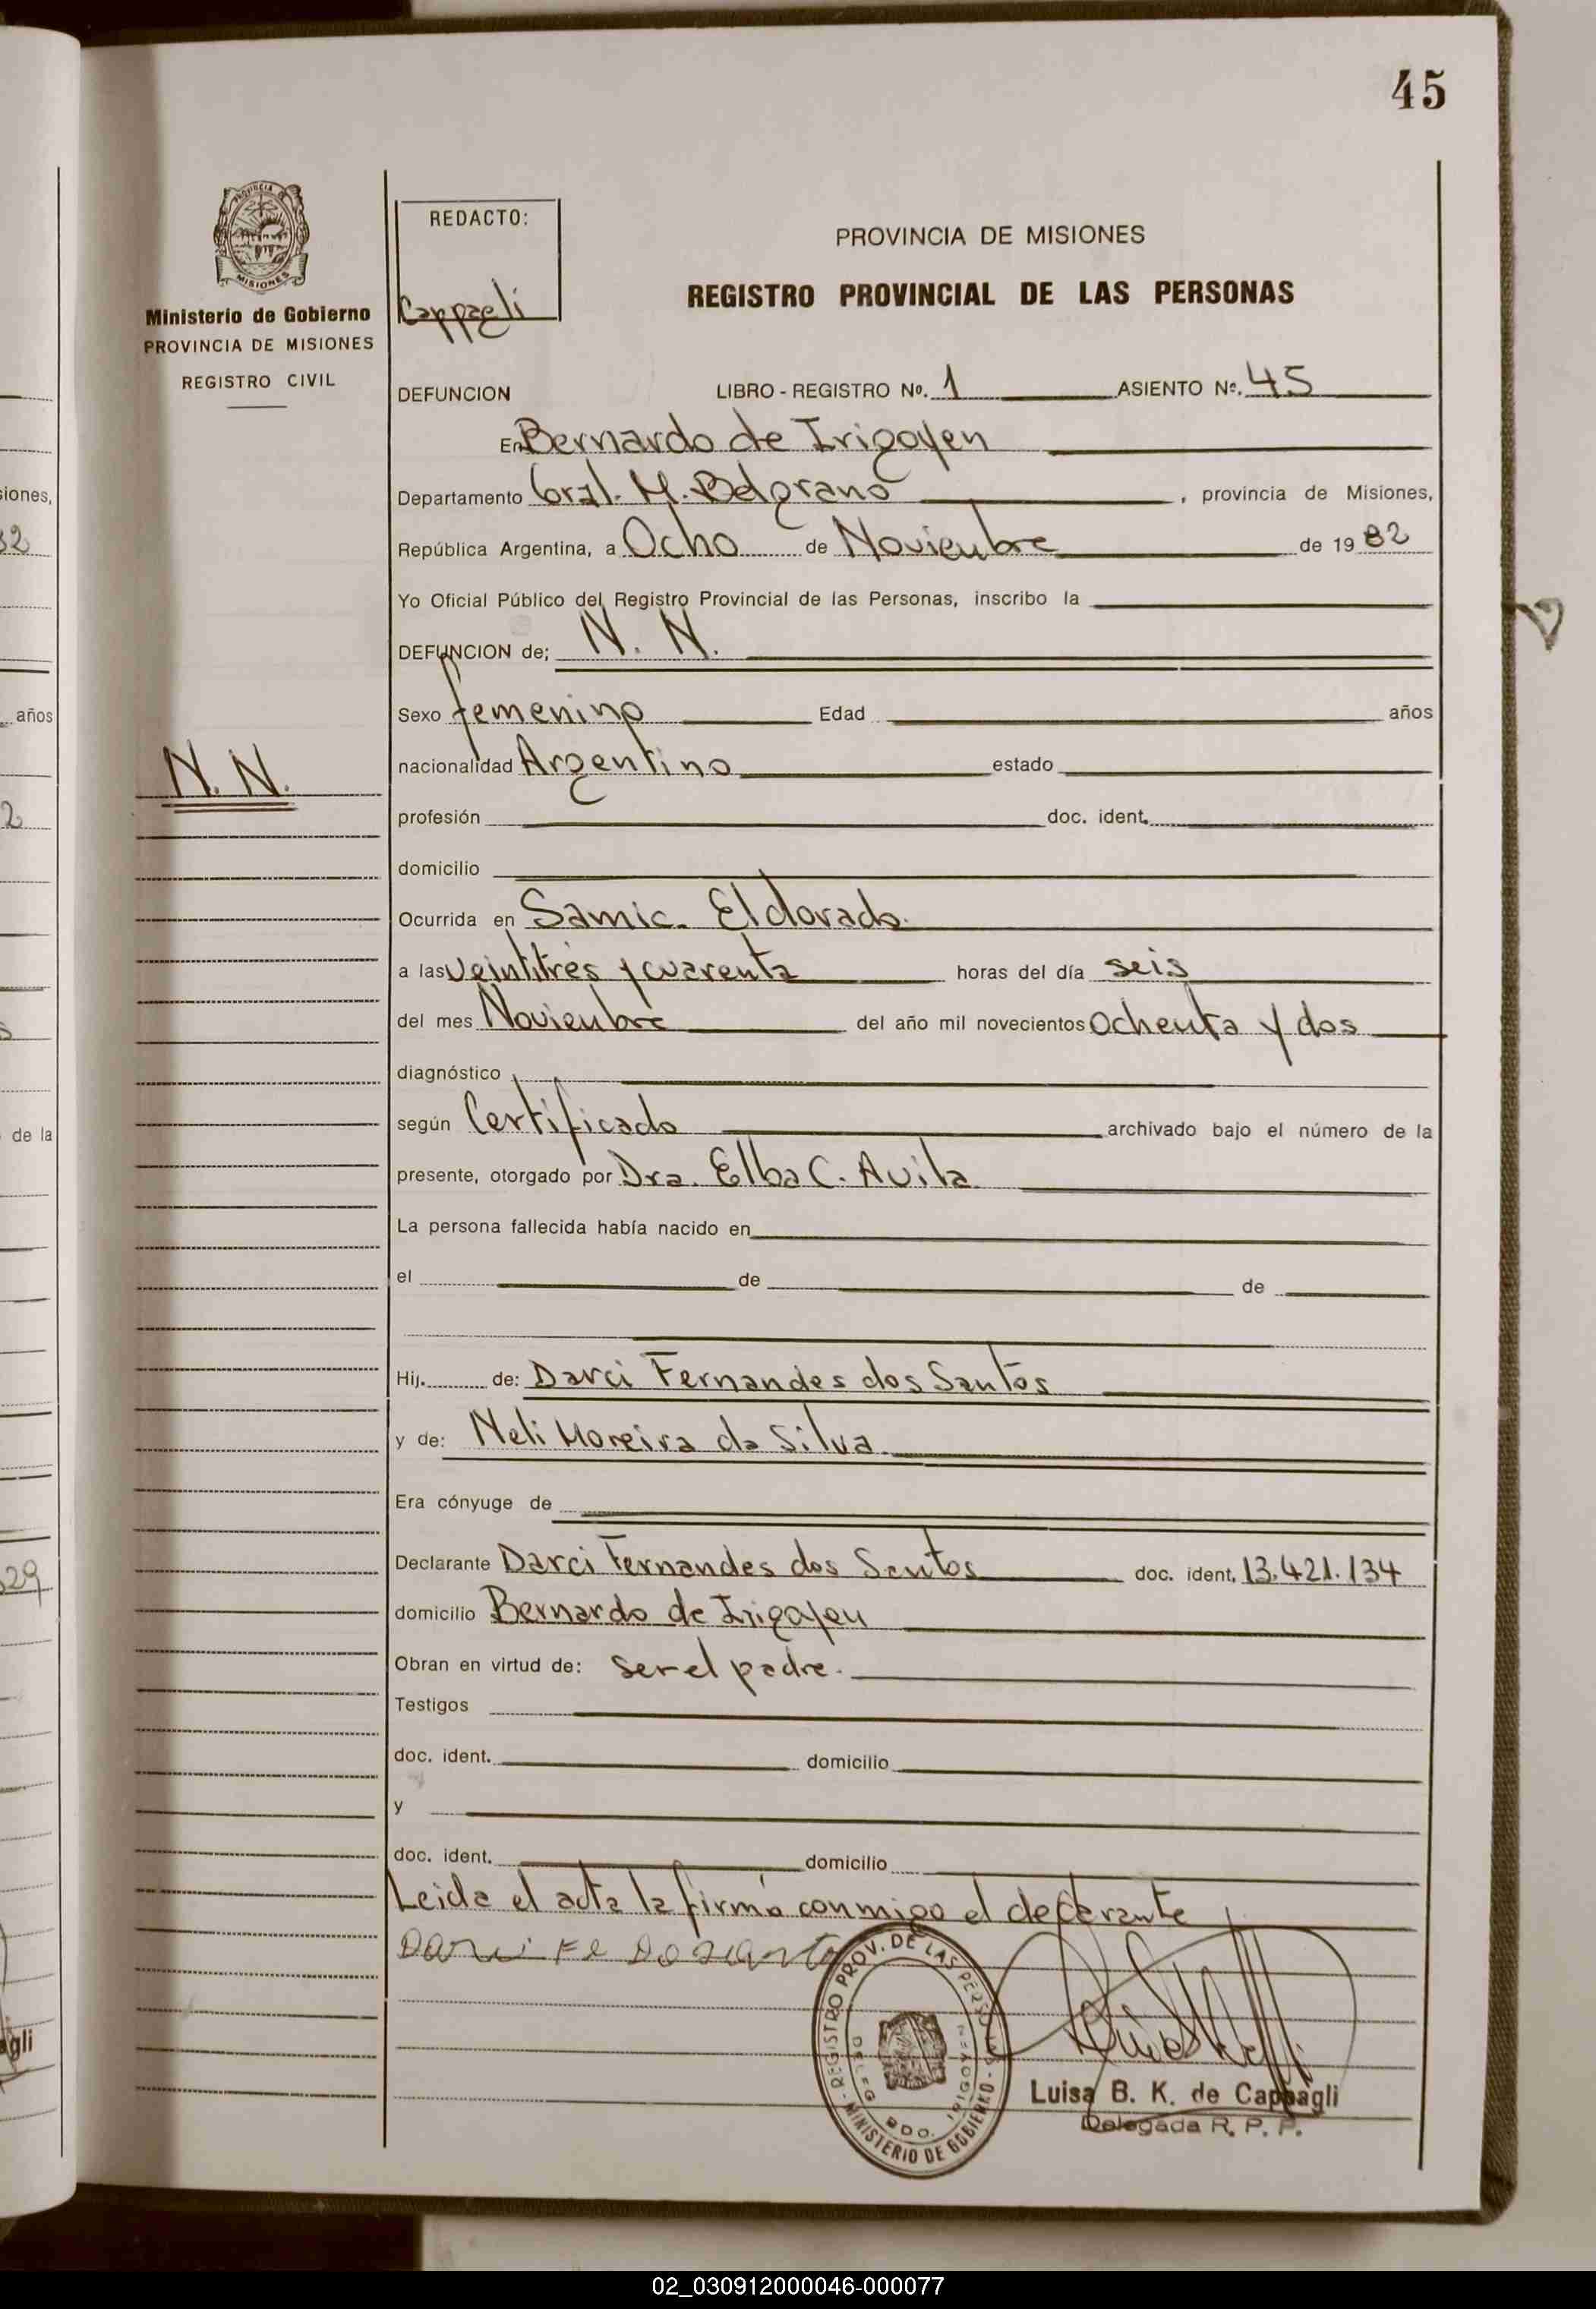 45
PROVINCIA DE
MISIONES
Ministerio de Gobierno
PROVINCIA DE MISIONES
REGISTRO CIVIL
N. N.
REDACTO:
Cappagli
PROVINCIA DE MISIONES
REGISTRO PROVINCIAL DE LAS PERSONAS
DEFUNCION LIBRO - REGISTRO Nº. 1 ASIENTO Nº. 45
En Bernardo de Irigoyen
Departamento Gral. M. Belgrano, provincia de Misiones,
República Argentina, a Ocho de Noviembre de 1982
Yo Oficial Público del Registro Provincial de las Personas, inscribo la
DEFUNCION de; N. N.
Sexo femenino Edad años
nacionalidad Argentino estado
profesión doc. ident.
domicilio
Ocurrida en Samic. Eldorado.
a las veintitrés y cuarenta horas del día seis
del mes Noviembre del año mil novecientos Ochenta y dos
diagnóstico
según Certificado archivado bajo el número de la
presente, otorgado por Dra. Elba C. Avila
La persona fallecida había nacido en
el de de
Hij. de: Darci Fernandes dos Santos
y de: Neli Moreira da Silva
Era cónyuge de
Declarante Darci Fernandes dos Santos doc. ident. 13.421.134
domicilio Bernardo de Irigoyen
Obran en virtud de: ser el padre.
Testigos
doc. ident. domicilio
y
doc. ident. domicilio
Leida el acta la firma conmigo el declarante
REGISTRO PROV. DE LAS PERSONAS - MINISTERIO DE GOBIERNO -
DELEG. BDO. IRIGOYEN
Luisa B. K. de Cappagli
Delegada R. P. P.
iones,
32
años
2
de la
29
agli
02_030912000046-000077